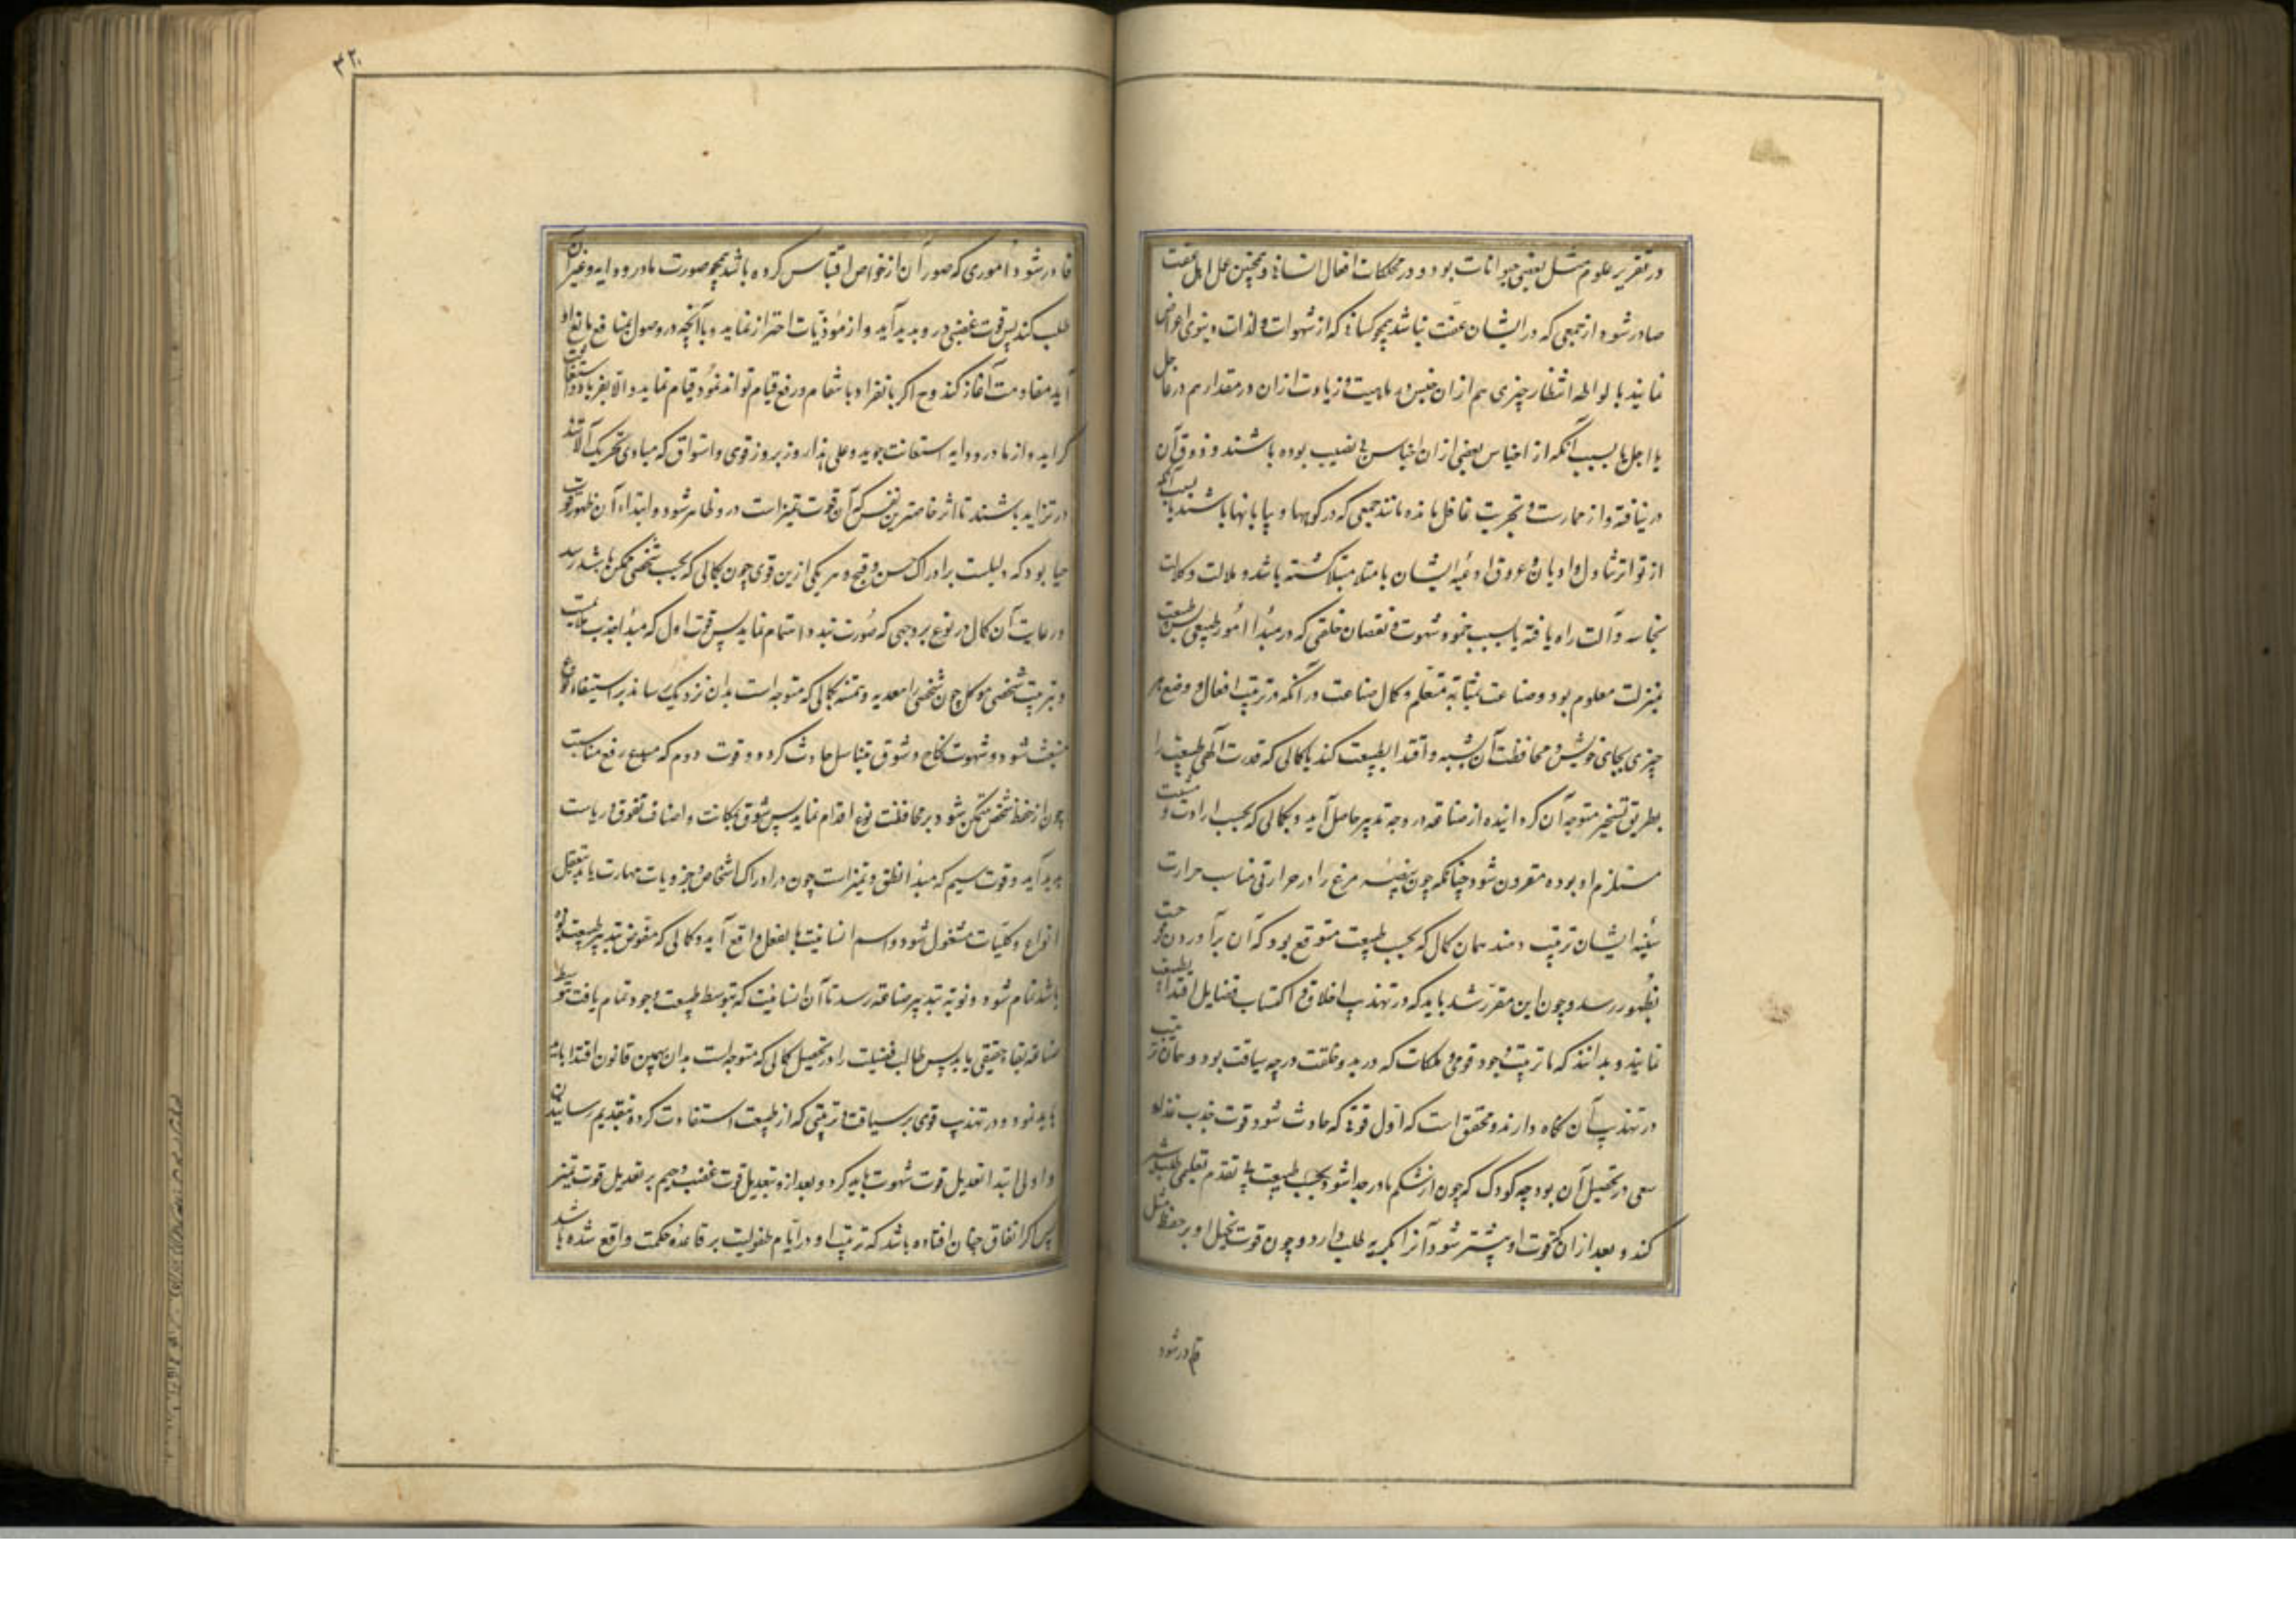 در تقریر علوم مثل بعضی حیوانات بود و در محاکات افعال انسانی و همچنین عمل اهل عفت
صادر شود از جمعی که در ایشان عفت نباشد همچو کسانی که از شهوات و لذات دنیوی اعراض
نمایند یا بواسطه انتظار چیزی هم ازان جنس در ماهیت و زیادت ازان در مقدار هم در عاجل
یا اجل یا بسبب آنکه از اجناس بعضی ازان اجناس بی نصیب بوده باشند و ذوق آن
در نیافته و از ممارست و تجربت غافل مانده مانند جمعی که در کوهها و بیابانها باشند یا بسبب آنکه
از تواتر تناول و ادمان عروق و اوعیه ایشان بامتلا مبتلا کشته باشد و ملالت و کلالت
بحاسه و آلت راه یافته یا بسبب خمود شهوت و نقصان خلقتی که در مبدأ امور طبیعی پس طبیعت
بمنزلت معلوم بود و صناعت بمثابه متعلم و کمال صناعت در آنکه در ترتیب افعال و وضع هر
چیزی بجای خویش و محافظت آن تشبه و اقتدا بطبیعت کند یا کمالی که قدرت الهی طبیعت را
بطریق تسخیر متوجه آن کردانیده از صناعه در وجه تدبیر حاصل آید و بکمالی که بحسب ارادت و مشیت
مستلزم او بوده مقرون شود چنانکه چون بیضه مرغ را در حرارتی مناسب حرارت
سینه ایشان ترتیب دهند همان کمال که بحسب طبیعت متوقع بود که آن برآوردن جوجه است
بظهور رسد و چون این مقرر شد باید که در تهذیب اخلاق و اکتساب فضایل اقتدا بطبیعت
نمایند و بدانند که تا ترتیب وجود قوی و ملکات که در بدو خلقت در چه سیاقت بود و همان ترتیب
در تهذیب آن نگاه دارند و محقق است که اول قوتی که حادث شود قوت جذب غذا و
سعی در تحصیل آن بود چه کودک که چون از شکم مادر جدا شود بحسب طبیعت بی تقدم تعلیمی طلب شیر
کند و بعد ازان که قوت او بیشتر شود آنرا بکریه طلب دارد و چون قوت تخیل او بر حفظ مثل
قادر شود
۳۲
قادر شود اموری که صور آن از خواص اقتباس کرده باشد همچو صورت مادر و دایه و غیر آن
طلب کند پس قوت غضبی در و پدید آید و از موذیات احتراز نماید و با آنچه در وصول بمنافع مانع او
آید مقاومت آغاز کند و ح اکر بانفراد بانتقام و رفع قیام تواند نمود قیام نماید و الا بفریاد و استغاثت
کراید و از مادر و دایه استعانت جوید و علی هذا روز بروز قوی و اشواق که مبادی تحریک آلاتند
در تزاید باشند تا اثر خاصترین نفس که آن قوت تمیز است در و ظاهر شود و ابتداء آن ظهور قوت
حیا بود که دلیلست بر ادراک حسن و قبح و هر یکی ازین قوی چون بکمالی که بحسب شخصی ممکن باشد رسد
و رعایت آن کمال در نوع بر وجهی که صورت بندد اهتمام نماید پس قوت اول که مبدأ جذب ملایمت
و تربیت شخصی موکل چون شخصی را معدیه و تنمیه بکمالی که متوجه است بدان نزدیک رساند بر استبقاء نوع
منبعث شود و شهوت نکاح و شوق تناسل حادث کردد و قوت دوم که مبدع رفع مناسبت
چون از حفظ شخص متمکن شود بر محافظت نوع اقدام نماید پس شوق بمکانت و اصناف تفوق و ریاست
پدید آید و قوت سیم که مبدأ نطق و تمیز است چون در ادراک اشخاص و جزویات مهارت یابد بتعقل
انواع و کلیات مشغول شود و اسم انسانیت بالفعل واقع آید و کمالی که مفوض بتدبیر طبیعت بود
باشد تمام شود و نوبه بتدبیر صناعه رسد تا آن انسانیت که بتوسط طبیعت وجود تمام یافت بتوسط
صناعه بقاء حقیقی یابد پس طالب فضیلت را در تحصیل کمالی که متوجه است بدان بهمین قانون اقتدا باید
باید نمود و در تهذیب قوی بر سیاقت ترتیبی که از طبیعت استفادت کرده بتقدیم رسانیدن
و اولی ابتدا تعدیل قوت شهوت باید کرد و بعد ازو بتعدیل قوت غضب و هیم بر تعدیل قوت تمیز
پس اکر اتفاق چنان افتاده باشد که تربیت او در ایام طفولیت بر قاعده حکمت واقع شده باشد